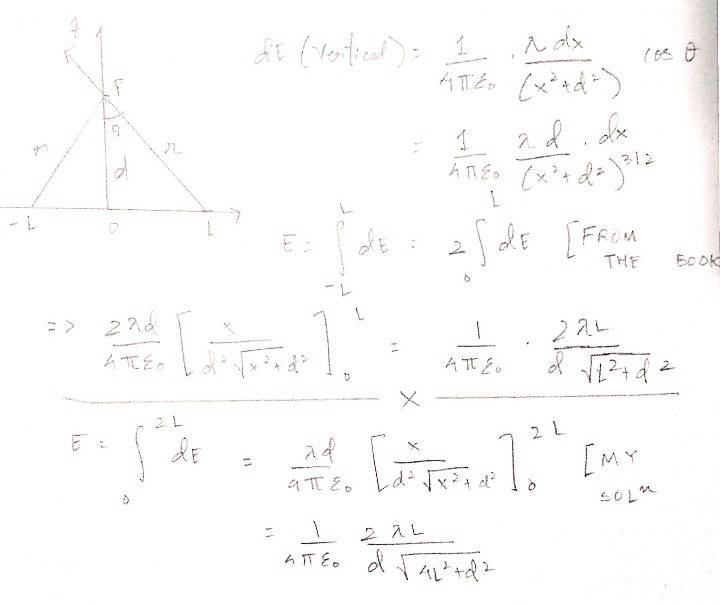 z
P
θ
r
r
d
-L
0
L
dE (Vertical) = 1/4πε₀ · λ dx/(x²+d²) cos θ
= 1/4πε₀ λ d · dx/(x²+d²)^3/2
E = ∫_{-L}^{L} dE = 2 ∫_0^L dE [FROM THE BOOK
=> 2λd/4πε₀ [x/d²√x²+d²]_0^L = 1/4πε₀ · 2λL/d√L²+d²
×
E = ∫_0^{2L} dE = λd/4πε₀ [x/d²√x²+d²]_0^{2L} [MY SOLⁿ
= 1/4πε₀ 2λL/d√4L²+d²